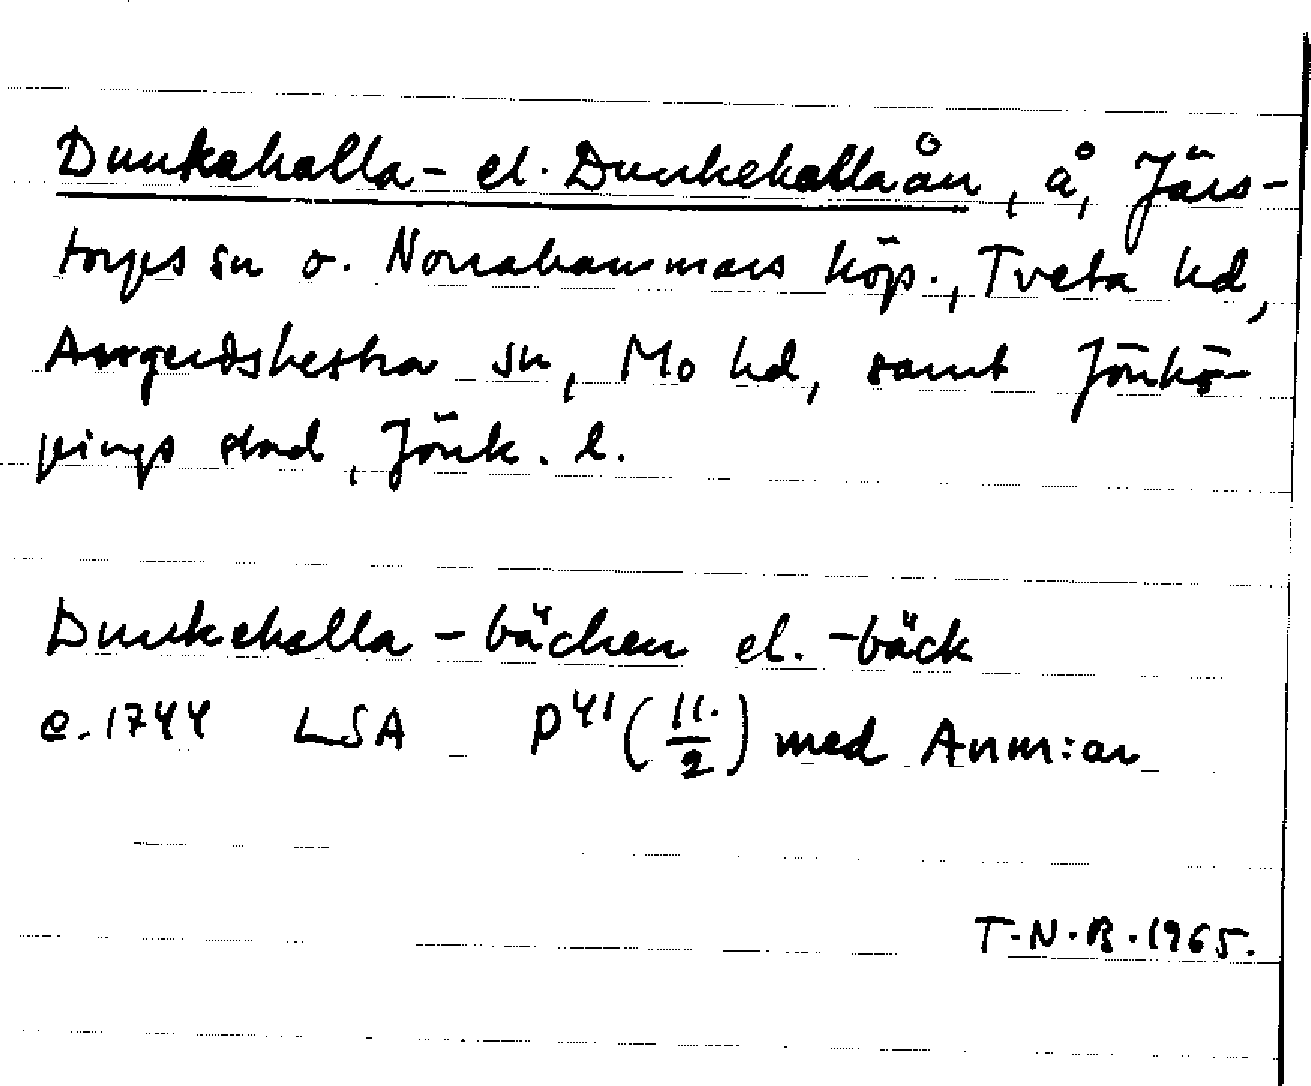 Dunkahalla- el. Dunkehallaån, å, Järs-
torps sn o. Norrahammars köp., Tveta hd,
Angerdshestra sn, Mo hd, samt Jönkö-
pings stad, Jönk. l.
Dunkehalla-bäcken el. -bäck
c. 1744 LSA P41 (11./2) med Anm:ar
T.N.B. 1965.